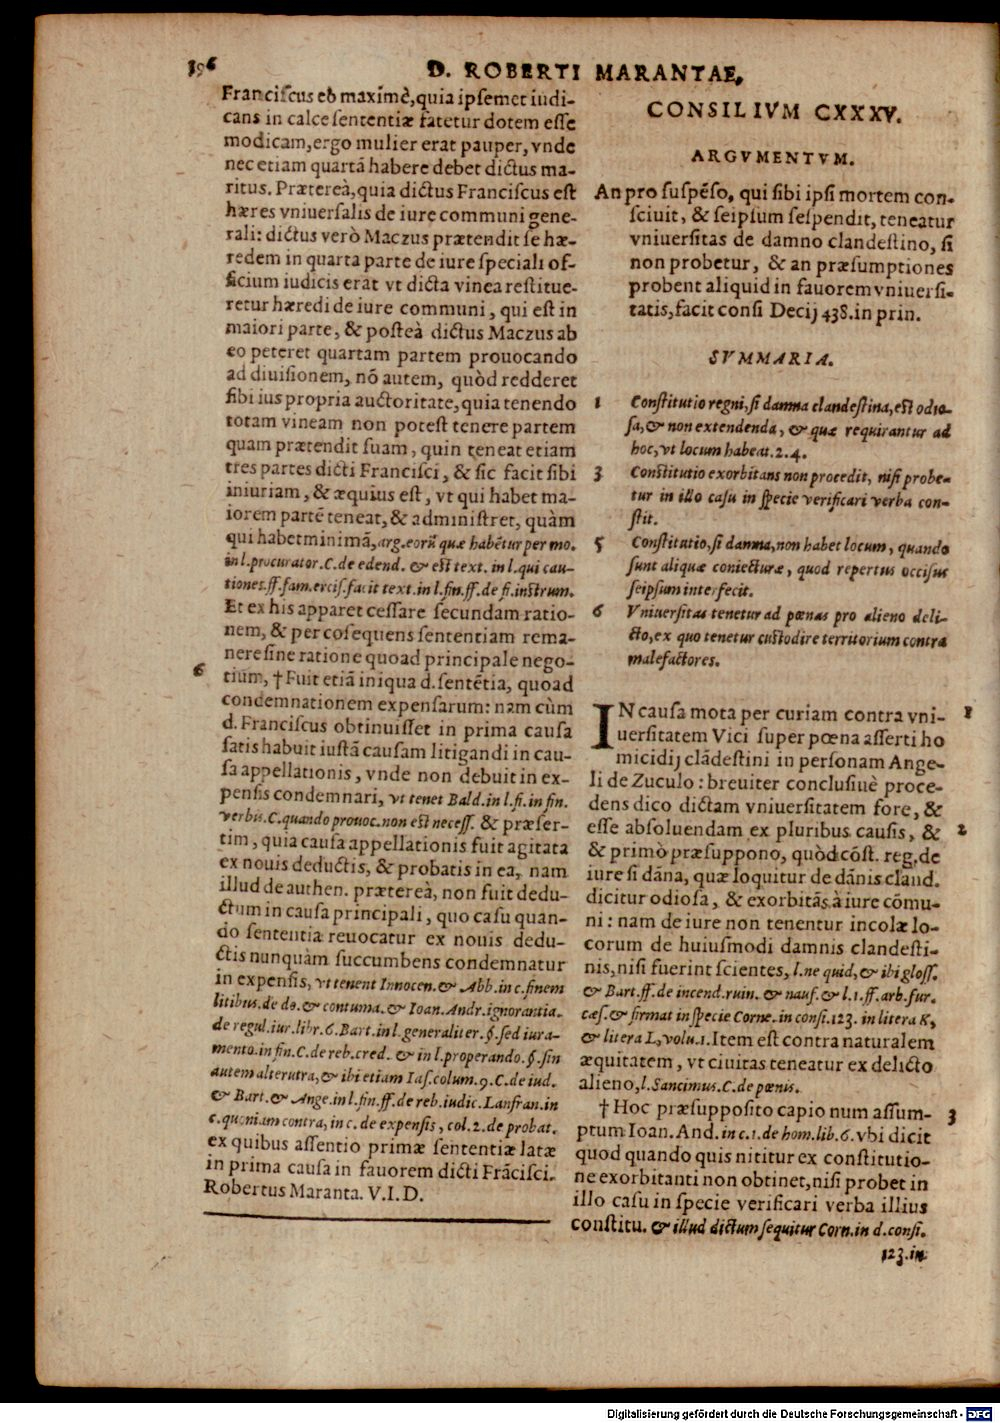 396
D. ROBERTI MARANTAE,
Franciſcus eò maximè, quia ipſemet iudi-
cans in calce ſententiæ fatetur dotem eſſe
modicam, ergo mulier erat pauper, vnde
nec etiam quartã habere debet dictus ma-
ritus. Prætereà, quia dictus Franciſcus eſt
hæres vniuerſalis de iure communi gene-
rali: dictus verò Maczus prætendit ſe hæ-
redem in quarta parte de iure ſpeciali of-
ficium iudicis erat vt dicta vinea reſtitue-
retur hæredi de iure communi, qui eſt in
maiori parte, & poſteà dictus Maczus ab
eo peteret quartam partem prouocando
ad diuiſionem, nõ autem, quòd redderet
ſibi ius propria auctoritate, quia tenendo
totam vineam non poteſt tenere partem
quam prætendit ſuam, quin teneat etiam
tres partes dicti Franciſci, & ſic facit ſibi
iniuriam, & æquius eſt, vt qui habet ma-
iorem partẽ teneat, & adminiſtret, quàm
qui habet minimã, arg. eorũ quæ habẽtur per mo.
in l. procurator. C. de edend. & eſt text. in l. qui cau-
tiones. ff. fam. erciſ. facit text. in l. fin. ff. de fi. inſtrum.
Et ex his apparet ceſſare ſecundam ratio-
nem, & per cõſequens ſententiam rema-
nere ſine ratione quoad principale nego-
6
tium, † Fuit etiã iniqua d. ſentẽtia, quoad
condemnationem expenſarum: nam cùm
d. Franciſcus obtinuiſſet in prima cauſa
ſatis habuit iuſtã cauſam litigandi in cau-
ſa appellationis, vnde non debuit in ex-
penſis condemnari, vt tenet Bald. in l. fi. in fin.
verbis. C. quando prouoc. non eſt neceſſ. & præſer-
tim, quia cauſa appellationis fuit agitata
ex nouis deductis, & probatis in ea, nam
illud de authen. prætereà, non fuit dedu-
ctum in cauſa principali, quo caſu quan-
do ſententia reuocatur ex nouis dedu-
ctis nunquàm ſuccumbens condemnatur
in expenſis, vt tenent Innocen. & Abb. in c. finem
litibus. de do. & contuma. & Ioan. Andr. ignorantia.
de regul. iur. libr. 6. Bart. in l. generaliter. §. ſed iura-
mento. in fin. C. de reb. cred. & in l. properando. §. ſin
autem alterutra, & ibi etiam Iaſ. colum. 9. C. de iud.
& Bart. & Ange. in l. fin. ff. de reb. iudic. Lanfran. in
c. quoniam contra, in c. de expenſis, col. 2. de probat.
ex quibus aſſentio primæ ſententiæ latæ
in prima cauſa in fauorem dicti Frãciſci.
Robertus Maranta. V. I. D.
CONSILIVM CXXXV.
ARGVMENTVM.
An pro ſuſpẽſo, qui ſibi ipſi mortem con-
ſciuit, & ſeipſum ſuſpendit, teneatur
vniuerſitas de damno clandeſtino, ſi
non probetur, & an præſumptiones
probent aliquid in fauorem vniuerſi-
tatis, facit conſi Decij 438. in prin.
SVMMARIA.
1 Conſtitutio regni, ſi damna clandeſtina, eſt odio-
ſa, & non extendenda, & quæ requirantur ad
hoc, vt locum habeat. 2. 4.
3 Conſtitutio exorbitans non procedit, niſi probe-
tur in illo caſu in ſpecie verificari verba con-
ſtit.
5 Conſtitutio, ſi damna, non habet locum, quando
ſunt aliquæ coniecturæ, quod repertus occiſus
ſeipſum interfecit.
6 Vniuerſitas tenetur ad pœnas pro alieno deli-
cto, ex quo tenetur cuſtodire territorium contra
malefactores.
IN cauſa mota per curiam contra vni- 1
uerſitatem Vici ſuper pœna aſſerti ho
micidij clãdeſtini in perſonam Ange-
li de Zuculo: breuiter concluſiuè proce-
dens dico dictam vniuerſitatem fore, &
eſſe abſoluendam ex pluribus cauſis, & 2
& primò præſuppono, quòd cõſt. reg. de
iure ſi dãna, quæ loquitur de dãnis cland.
dicitur odioſa, & exorbitãs à iure cõmu-
ni: nam de iure non tenentur incolæ lo-
corum de huiuſmodi damnis clandeſti-
nis, niſi fuerint ſcientes, l. ne quid, & ibi gloſſ.
& Bart. ff. de incend. ruin. & nauf. & l. 1. ff. arb. fur.
cæſ. & firmat in ſpecie Corne. in conſi. 123. in litera K,
& litera L, volu. 1. Item eſt contra naturalem
æquitatem, vt ciuitas teneatur ex delicto
alieno, l. Sancimus. C. de pœnis.
† Hoc præſuppoſito capio num aſſum- 3
ptum Ioan. And. in c. 1. de hom. lib. 6. vbi dicit
quod quando quis nititur ex conſtitutio-
ne exorbitanti non obtinet, niſi probet in
illo caſu in ſpecie verificari verba illius
conſtitu. & illud dictum ſequitur Corn. in d. conſi.
123. in
Digitalisierung gefördert durch die Deutsche Forschungsgemeinschaft - DFG